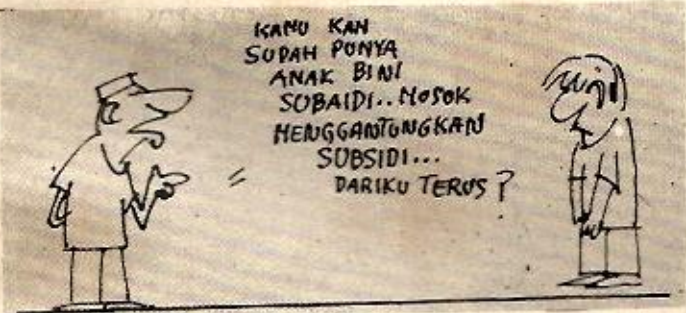 KAMU KAN
SUDAH PUNYA
ANAK BINI
SUBAIDI.. MOSOK
MENGGANTUNGKAN
SUBSIDI...
DARIKU TERUS?